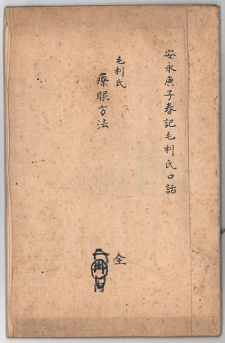 安永庚子春記毛利氏口話
毛利氏
療眼方法
全